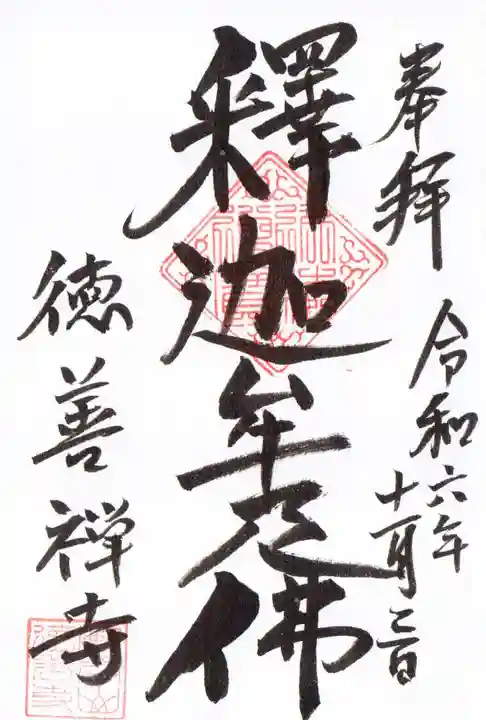 奉拜
令和六年
十一月三日
釋迦牟尼佛
徳善禅寺